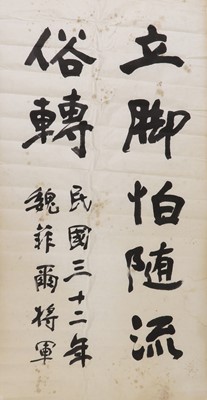 立脚怕随流
俗轉
民國三十二年
魏菲爾将軍